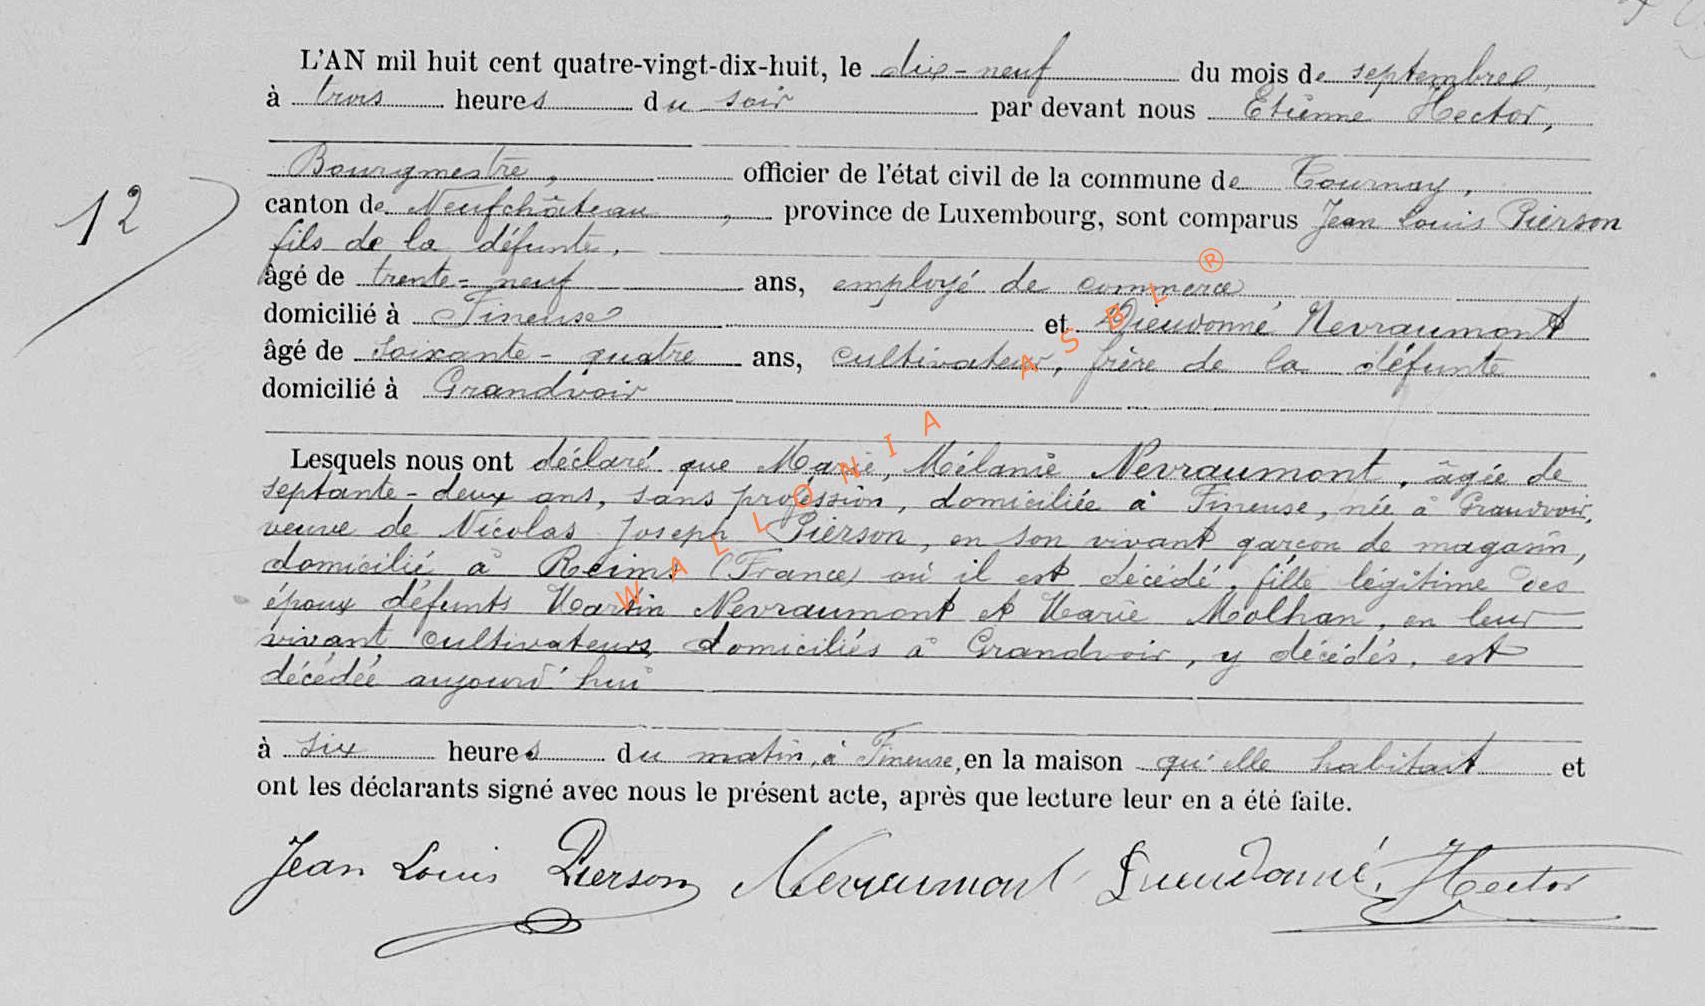 L'AN mil huit cent quatre-vingt-dix-huit, le dix-neuf du mois de septembre
à trois heures du soir par devant nous Etienne Hector,
Bourgmestre, officier de l'état civil de la commune de Tournay,
12
canton de Neufchâteau, province de Luxembourg, sont comparus Jean Louis Pierson
fils de la défunte,
âgé de trente-neuf ans, employé de commerce
domicilié à Fineuse et Dieudonné Nevraumont
âgé de soixante-quatre ans, cultivateur, frère de la défunte
domicilié à Grandvoir
Lesquels nous ont déclaré que Marie, Mélanie Nevraumont, âgée de
septante-deux ans, sans profession, domiciliée à Fineuse, née à Grandvoir,
veuve de Nicolas Joseph Pierson, en son vivant garçon de magasin,
domicilié à Reims (France) où il est décédé, fille légitime des
époux défunts Martin Nevraumont et Marie Molhan, en leur
vivant cultivateurs, domiciliés à Grandvoir, y décédés, est
décédée aujourd'hui
à six heures du matin, à Fineuse, en la maison qu'elle habitait et
ont les déclarants signé avec nous le présent acte, après que lecture leur en a été faite.
Jean Louis Pierson Nevraumont Dieudonné, Hector
WALLONIA ASBL ®